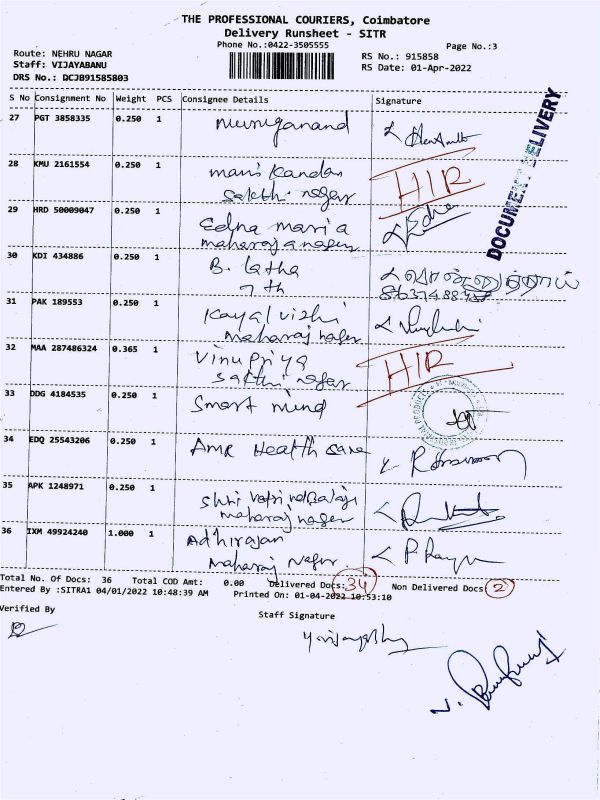 THE PROFESSIONAL COURIERS, Coimbatore
Delivery Runsheet - SITR
Phone No.:0422-3505555
Page No.:3
Route: NEHRU NAGAR
Staff: VIJAYABANU
DRS No.: DCJB91585803
RS No.: 915858
RS Date: 01-Apr-2022
S No Consignment No Weight PCS Consignee Details Signature
DOCUMENT DELIVERY
27 PGT 3858335 0.250 1 Muruganand
28 KMU 2161554 0.250 1 mani kandan HIR
Sakthi nagar
29 HRD 50009047 0.250 1 Edna maria Edna
maharaja nager
30 KDI 434886 0.250 1 B. latha
7th
31 PAK 189553 0.250 1 Kayal vizhi
Maharaj nager
32 MAA 287486324 0.365 1 Vinupriya HIR
Sakthi nagar
33 DDG 4184535 0.250 1 Smart mind
34 EDQ 25543206 0.250 1 AMR Health care
35 APK 1248971 0.250 1 Shri
maharaj nager
36 IXM 49924240 1.000 1 Adhirajan
Maharaj Nager
Total No. Of Docs: 36 Total COD Amt: 0.00 Delivered Docs: 34 Non Delivered Docs: 2
Entered By :SITRA1 04/01/2022 10:48:39 AM Printed On: 01-04-2022 10:53:10
Verified By
Staff Signature